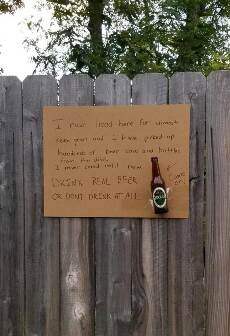 I have lived here for almost
seven years and I have picked up
hundreds of beer cans and bottles
from this ditch.
I never could until now.
DRINK REAL BEER
OR DONT DRINK AT ALL
Come on